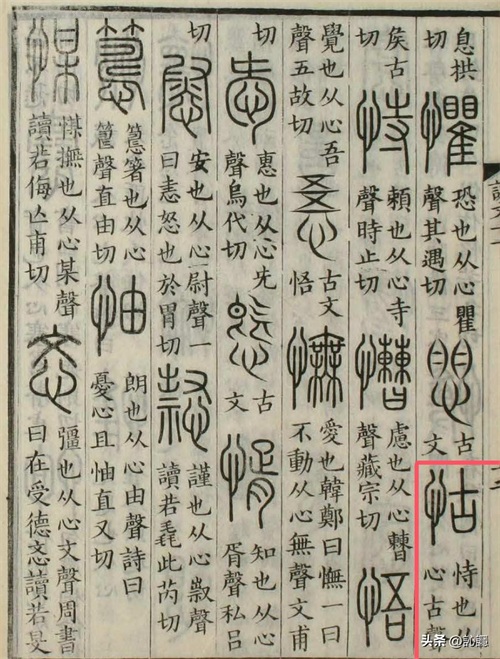 息拱
切
懼
恐也从心瞿
聲其遇切
古
文
怙
恃也从
心古聲
矦古
切
恃
賴也从心寺
聲時止切
慒
慮也从心
聲藏宗切
悟
覺也从心吾
聲五故切
古文
悟
憮
愛也韓鄭曰憮一曰
不動从心無聲文甫
切
㤅
惠也从心先
聲烏代切
古
文
㥠
知也从心
胥聲私呂
切
慰
安也从心尉聲一
曰恚怒也於胃切
謹也从心㕞聲
讀若毳此芮切
箸也从心
聲直由切
怞
朗也从心由聲詩曰
憂心且怞直又切
㥸
㥸撫也从心某聲
讀若侮亡甫切
忞
彊也从心文聲周書
曰在受德忞讀若旻
头条